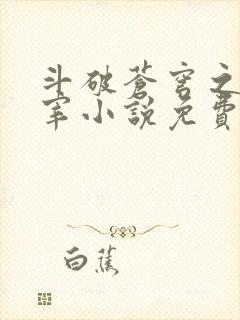 斗破蒼穹之
宰小說免費
白蕉